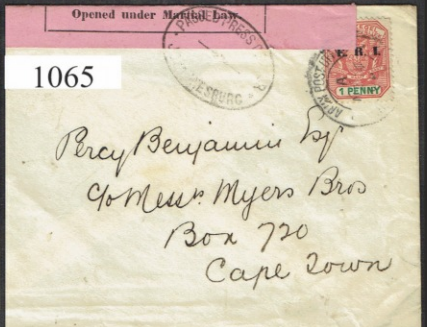 Opened under Martial Law.
PASSED PRESS
ESBURG
1065
E.R.I.
ARMY POST
1 PENNY
Percy Benjamin Esqr
c/o Messrs Myers Bros
Box 720
Cape Town